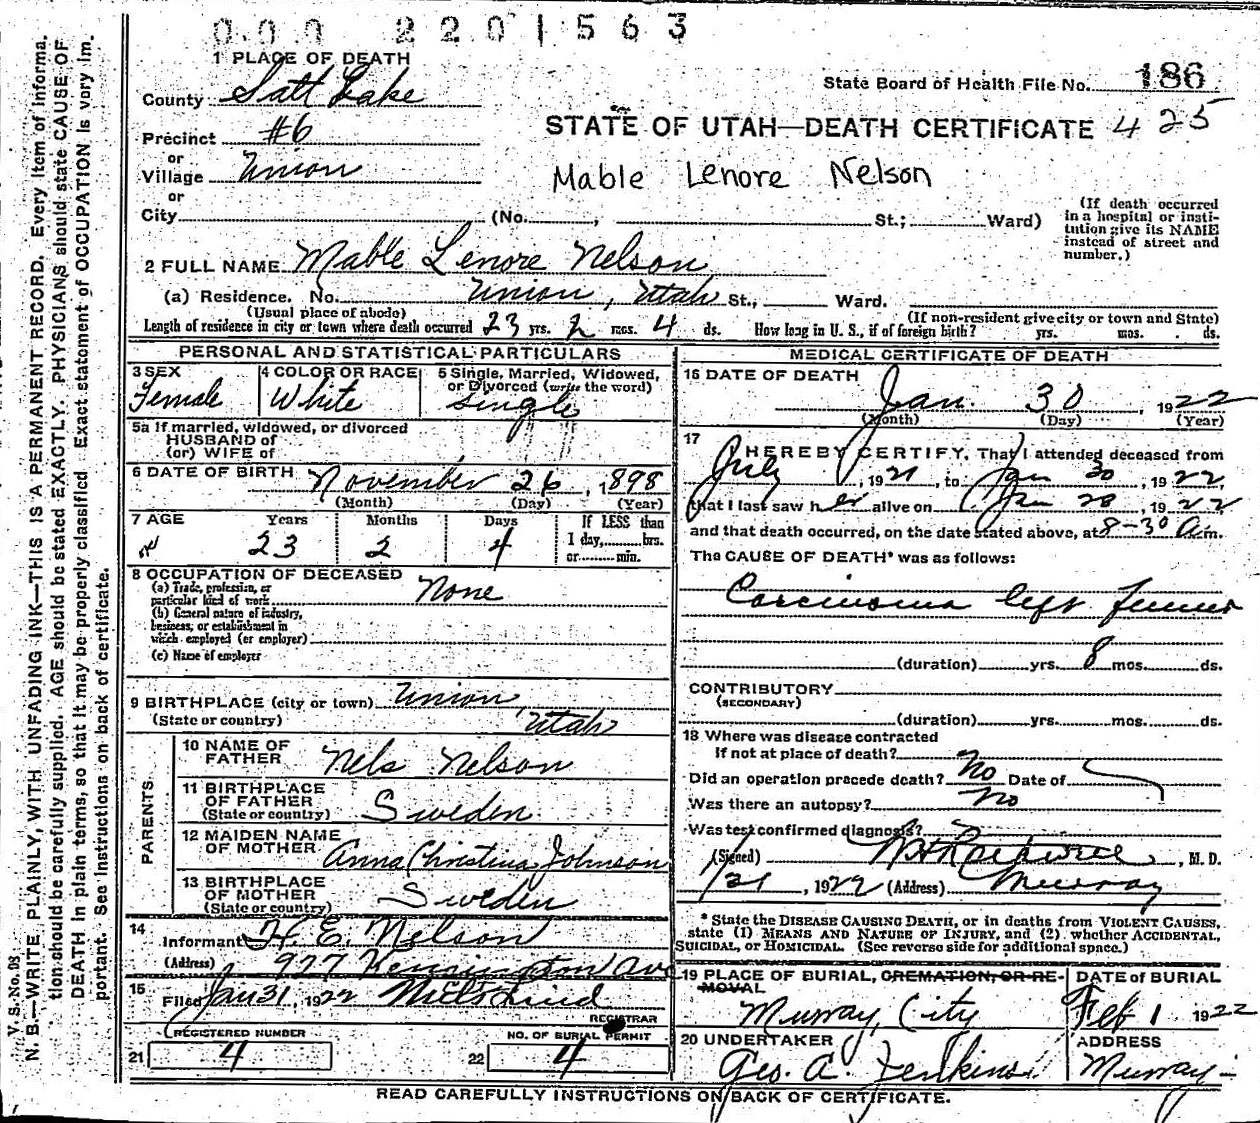 000 2201563
1 PLACE OF DEATH
County Salt Lake
State Board of Health File No. 186
Precinct #6
STATE OF UTAH—DEATH CERTIFICATE 425
or
Village Union
Mable Lenore Nelson
or
City (No. , St.; Ward)
(If death occurred
in a hospital or insti-
tution give its NAME
instead of street and
number.)
2 FULL NAME Mable Lenore Nelson
(a) Residence. No. Union, Utah St., Ward.
(Usual place of abode) (If non-resident give city or town and State)
Length of residence in city or town where death occurred 23 yrs. 2 mos. 4 ds. How long in U. S., if of foreign birth? yrs. mos. ds.
PERSONAL AND STATISTICAL PARTICULARS
3 SEX
Female
4 COLOR OR RACE
White
5 Single, Married, Widowed,
or Divorced (write the word)
single
5a If married, widowed, or divorced
HUSBAND of
(or) WIFE of
6 DATE OF BIRTH November 26, 1898
(Month) (Day) (Year)
7 AGE Years Months Days If LESS than
1 day, hrs.
23 2 4 or min.
8 OCCUPATION OF DECEASED
(a) Trade, profession, or
particular kind of work None
(b) General nature of industry,
business, or establishment in
which employed (or employer)
(c) Name of employer
9 BIRTHPLACE (city or town) Union,
(State or country) Utah
PARENTS
10 NAME OF
FATHER Nels Nelson
11 BIRTHPLACE
OF FATHER
(State or country) Sweden
12 MAIDEN NAME
OF MOTHER Anna Christina Johnson
13 BIRTHPLACE
OF MOTHER
(State or country) Sweden
14
Informant H. E. Nelson
(Address) 927 Kensington Ave
15
Filed Jan 31, 1922 Nils Lind
REGISTRAR
REGISTERED NUMBER
21 4
NO. OF BURIAL PERMIT
22 4
MEDICAL CERTIFICATE OF DEATH
16 DATE OF DEATH
Jan. 30, 1922
(Month) (Day) (Year)
17
I HEREBY CERTIFY, That I attended deceased from
July, 1921, to Jan 30, 1922,
that I last saw her alive on Jan 28, 1922
and that death occurred, on the date stated above, at 8-30 A.m.
The CAUSE OF DEATH* was as follows:
Carcinoma left femur
(duration) yrs. 8 mos. ds.
CONTRIBUTORY
(SECONDARY)
(duration) yrs. mos. ds.
18 Where was disease contracted
if not at place of death?
Did an operation precede death? No Date of
Was there an autopsy? No
Was test confirmed diagnosis?
(Signed) , M. D.
1/31, 1922 (Address) Murray
* State the DISEASE CAUSING DEATH, or in deaths from VIOLENT CAUSES,
state (1) MEANS AND NATURE OF INJURY, and (2) whether ACCIDENTAL,
SUICIDAL, or HOMICIDAL. (See reverse side for additional space.)
19 PLACE OF BURIAL, CREMATION, OR RE-
MOVAL
Murray City
DATE of BURIAL
Feb 1 1922
20 UNDERTAKER
Geo. A. Jenkins
ADDRESS
Murray-
READ CAREFULLY INSTRUCTIONS ON BACK OF CERTIFICATE.
V. S. No. 98
N. B.—WRITE PLAINLY, WITH UNFADING INK—THIS IS A PERMANENT RECORD. Every item of informa-
tion should be carefully supplied. AGE should be stated EXACTLY. PHYSICIANS should state CAUSE OF
DEATH in plain terms, so that it may be properly classified. Exact statement of OCCUPATION is very im-
portant. See instructions on back of certificate.